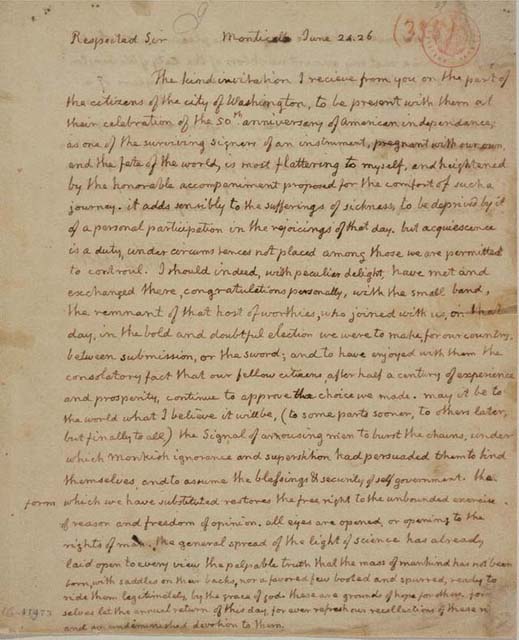 Respected Sir Monticello June 24. 26
The kind invitation I recieve from you on the part of
the citizens of the city of Washington, to be present with them at
their celebration of the 50th anniversary of American independance;
as one of the surviving signers of an instrument, pregnant with our own,
and the fate of the world, is most flattering to myself, and heightened
by the honorable accompaniment proposed for the comfort of such a
journey. it adds sensibly to the sufferings of sickness, to be deprived by it
of a personal participation in the rejoicings of that day. but acquiescence
is a duty, under circumstances not placed among those we are permitted
to controul. I should indeed, with peculiar delight, have met and
exchanged there, congratulations personally, with the small band,
the remnant of that host of worthies, who joined with us, on that
day, in the bold and doubtful election we were to make, for our country,
between submission, or the sword; and to have enjoyed with them the
consolatory fact that our fellow citizens, after half a century of experience
and prosperity, continue to approve the choice we made. may it be to
the world what I believe it will be, (to some parts sooner, to others later,
but finally to all,) the Signal of arousing men to burst the chains, under
which Monkish ignorance and superstition had persuaded them to bind
themselves, and to assume the blessings & security of self government. the
form which we have substituted restores the free right to the unbounded exercise
of reason and freedom of opinion. all eyes are opened, or opening to the
rights of man. the general spread of the light of science has already
laid open to every view the palpable truth that the mass of mankind has not been
born, with saddles on their backs, nor a favored few booted and spurred, ready to
ride them legitimately, by the grace of god. these are grounds of hope for others. for
selves let the annual return of this day, for ever refresh our recollections of these
and an undiminished devotion to them.